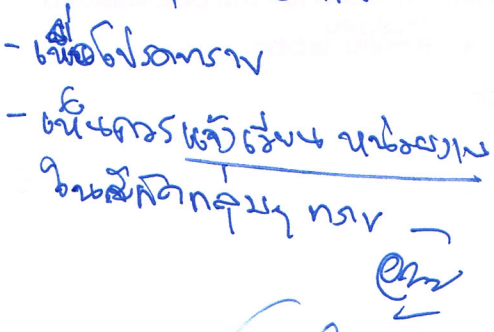 - เพื่อโปรดทราบ
- เห็นควรแจ้งเวียน หน่วยงาน
ในสังกัดกลุ่มฯ ทราบ